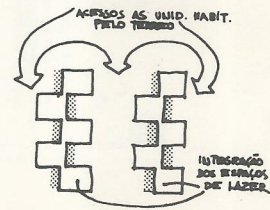 ACESSOS AS UNID. HABIT.
PELO TERREO
INTEGRAÇÃO
DOS ESPAÇOS
DE LAZER